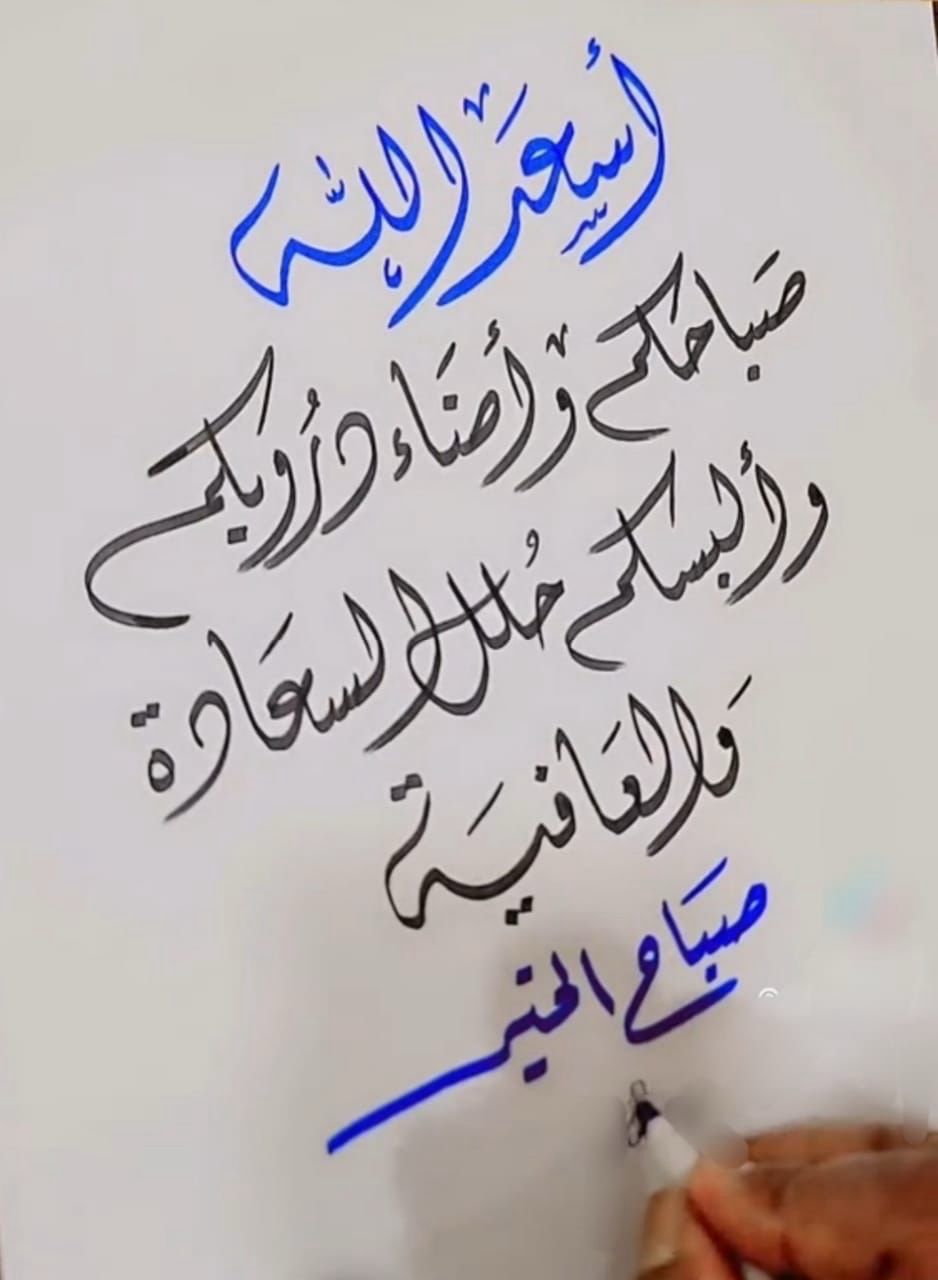 أسعَد الله
صَباحَكم وأضَاء درُوبَكم
وألبسَكم حُلل السعَادة
وَالعَافيَة
صبَاح الخير